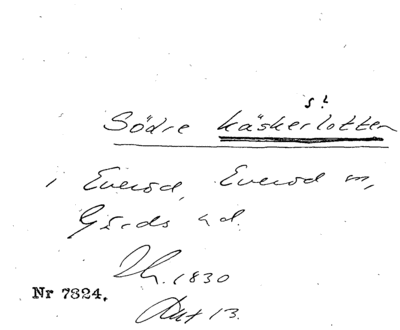 s!
Södre Käskerlotten
i Everöd, Everöd sn,
Gärds hd.
1830
Nr 7824.
Akt 13.